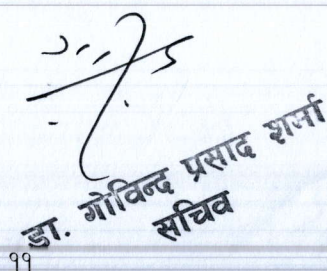 डा. गोविन्द प्रसाद शर्मा
सचिव
११